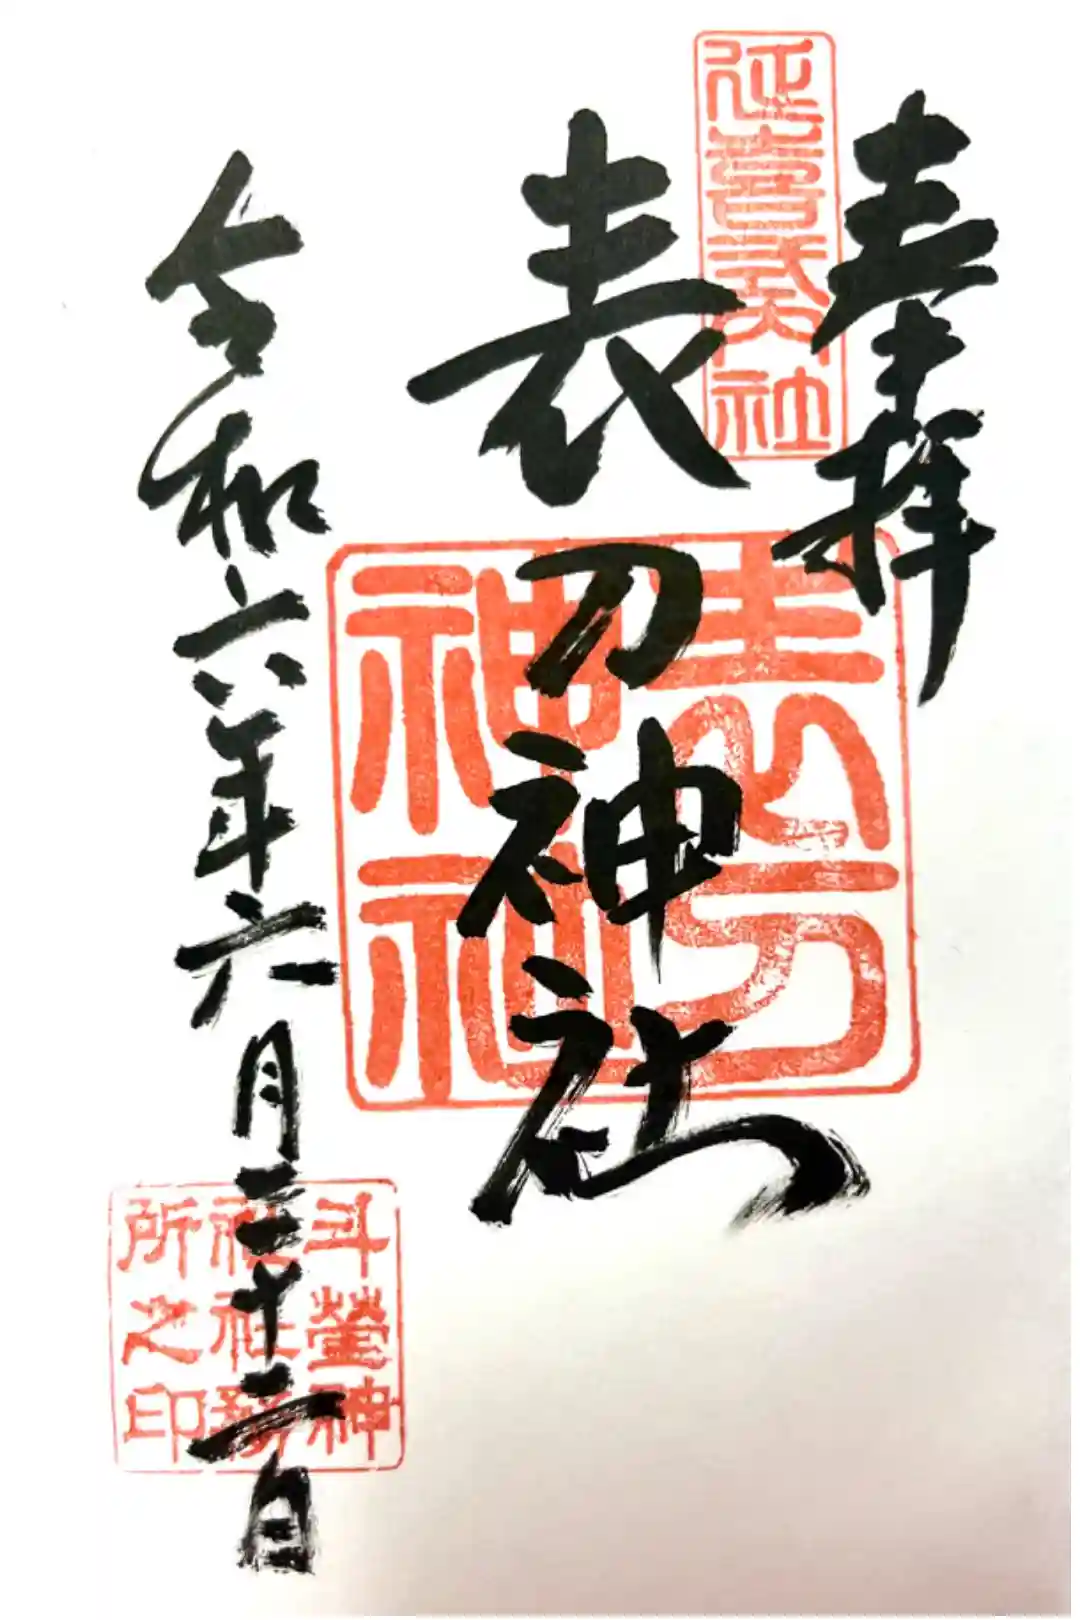 延喜式内社
奉拝
表刀神社
表刀
神社
令和六年六月二十二日
斗瑩神
社務
所之印